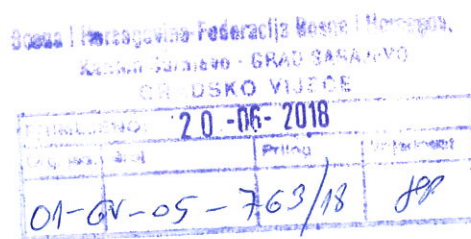 Bosna i Hercegovina-Federacija Bosne i Hercegov.
Kanton Sarajevo - GRAD SARAJEVO
GRADSKO VIJEĆE
PRIMLJENO: 20 -06- 2018
Prilog
01-GV-05-763/18